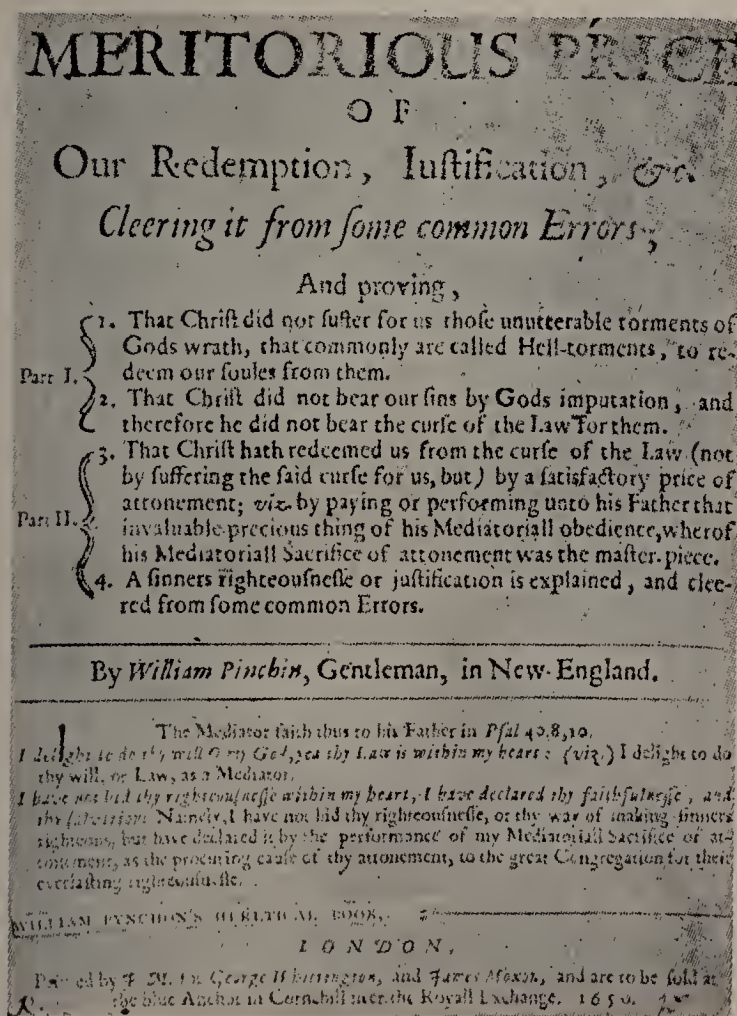 MERITORIOUS PRICE
OF
Our Redemption, Iuſtification, &c.
Cleering it from ſome common Errors;
And proving,
Part I.
1. That Chriſt did not ſuffer for us thoſe unutterable torments of
Gods wrath, that commonly are called Hell-torments, to re-
deem our ſoules from them.
2. That Chriſt did not bear our ſins by Gods imputation, and
therefore he did not bear the curſe of the Law for them.
Part II.
3. That Chriſt hath redeemed us from the curſe of the Law (not
by ſuffering the ſaid curſe for us, but) by a ſatisfactory price of
attonement; viz. by paying or performing unto his Father that
invaluable precious thing of his Mediatoriall obedience, wherof
his Mediatoriall Sacrifice of attonement was the maſter-piece.
4. A ſinners righteouſneſſe or juſtification is explained, and clee-
red from ſome common Errors.
By William Pinchin, Gentleman, in New-England.
The Mediator ſaith thus to his Father in Pſal 40.8,10.
I delight to do thy will O my God, yea thy Law is within my heart: (viz.) I delight to do
thy will, or Law, as a Mediator.
I have not hid thy righteouſneſſe within my heart, I have declared thy faithfulneſſe, and
thy ſalvation: Namely, I have not hid thy righteouſneſſe, or thy way of making ſinners
righteous, but have declared it by the performance of my Mediatoriall Sacrifice of at-
tonement, as the procuring cauſe of thy attonement, to the great Congregation for their
everlaſting righteouſneſſe.
WILLIAM PYNCHON'S HERETICAL BOOK,
LONDON,
Printed by J. M. for George Whittington, and James Moxon, and are to be ſold at
the blue Anchor in Cornhill neer the Royall Exchange. 1650.